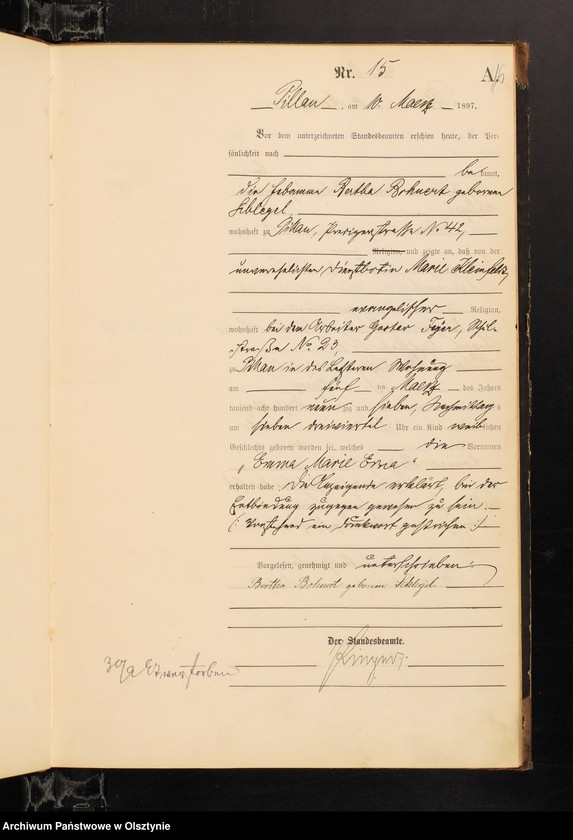 Nr. 15
A
Pillau, am 10. Maerz 1897.
Vor dem unterzeichneten Standesbeamten erschien heute, der Per-
sönlichkeit nach
bekannt,
die Hebamme Bertha Bohnert geborene
Schlegel,
wohnhaft zu Pillau, Predigerstrasse No 42,
Religion, und zeigte an, daß von der
unverehelichten Dienstbotin Marie
evangelischer Religion,
wohnhaft bei dem Arbeiter Gustav
straße No. 23
zu Pillau in des Letzteren Wohnung
am fünf ten Maerz des Jahres
tausend acht hundert neunzig und sieben, Nachmittags
um sieben dreiviertel Uhr ein Kind weiblichen
Geschlechts geboren worden sei, welches die Vornamen
„Emma Marie Erna"
erhalten habe. Die Anzeigende erklärt, bei der
Entbindung zugegen gewesen zu sein.
(: Vorstehend ein Druckwort gestrichen :)
Vorgelesen, genehmigt und unterschrieben:
Bertha Bohnert geborene Schlegel.
Der Standesbeamte.
Archiwum Państwowe w Olsztynie